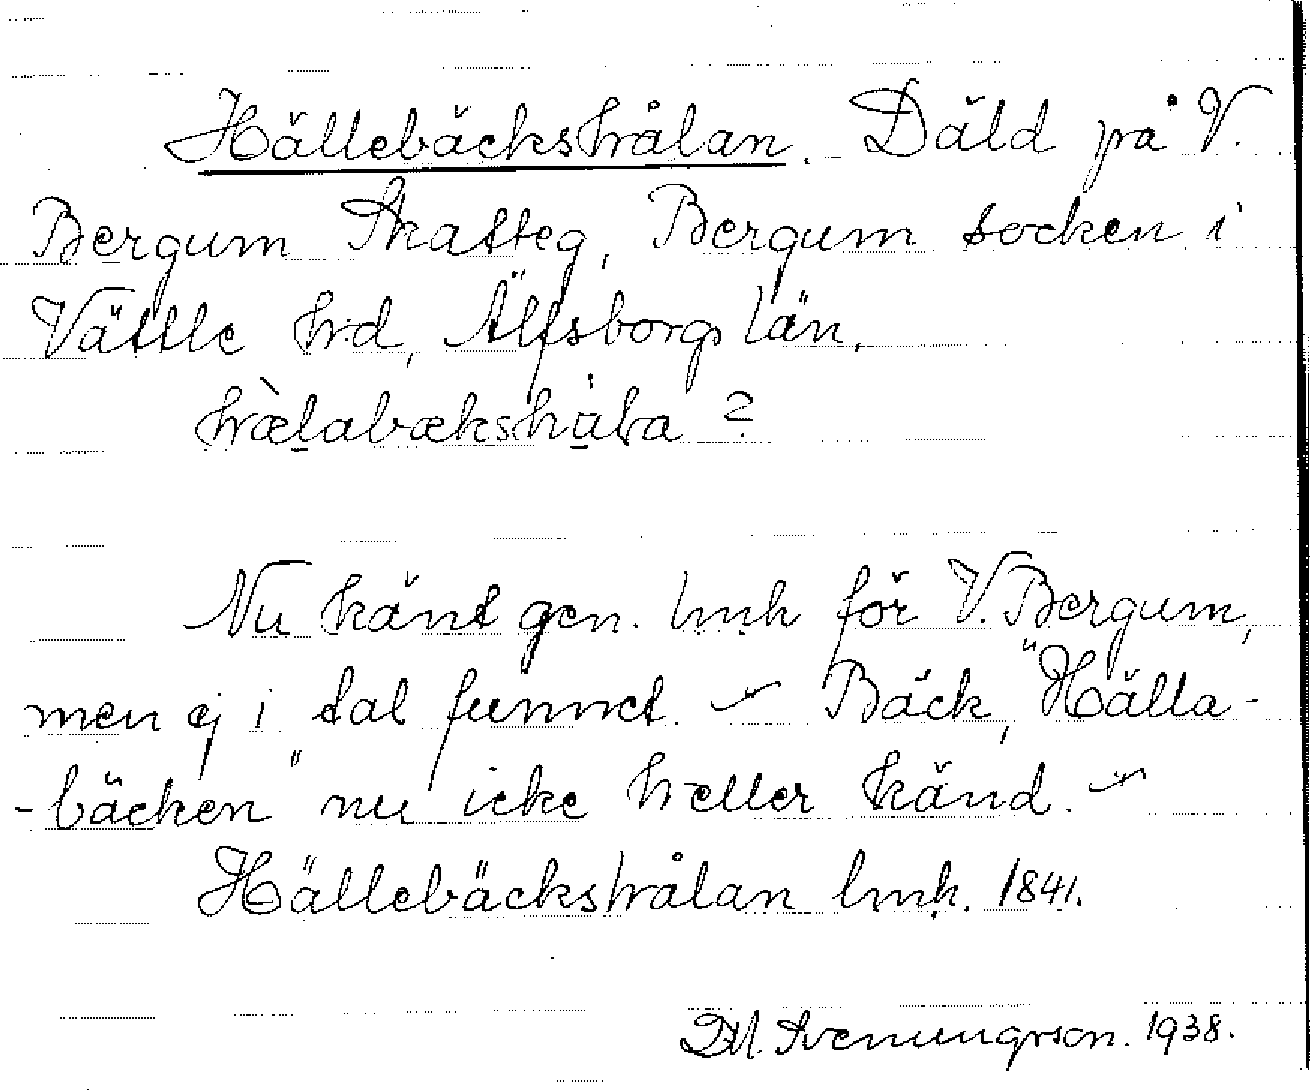 Hällebäckshålan. Däld på V.
Bergum Skatteg, Bergum socken i
Vättle hd, Älfsborgs län.
hælabækshåla ?
Nu känt gen. lmk för V. Bergum,
men ej i tal funnet. – Bäck, "Hälla-
-bäcken" nu icke heller känd. –
Hällebäckshålan lmk. 1841.
Svenungsson. 1938.